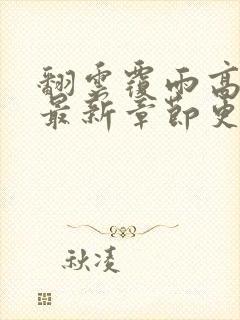 翻雲覆雨高
最新章節更
秋凌